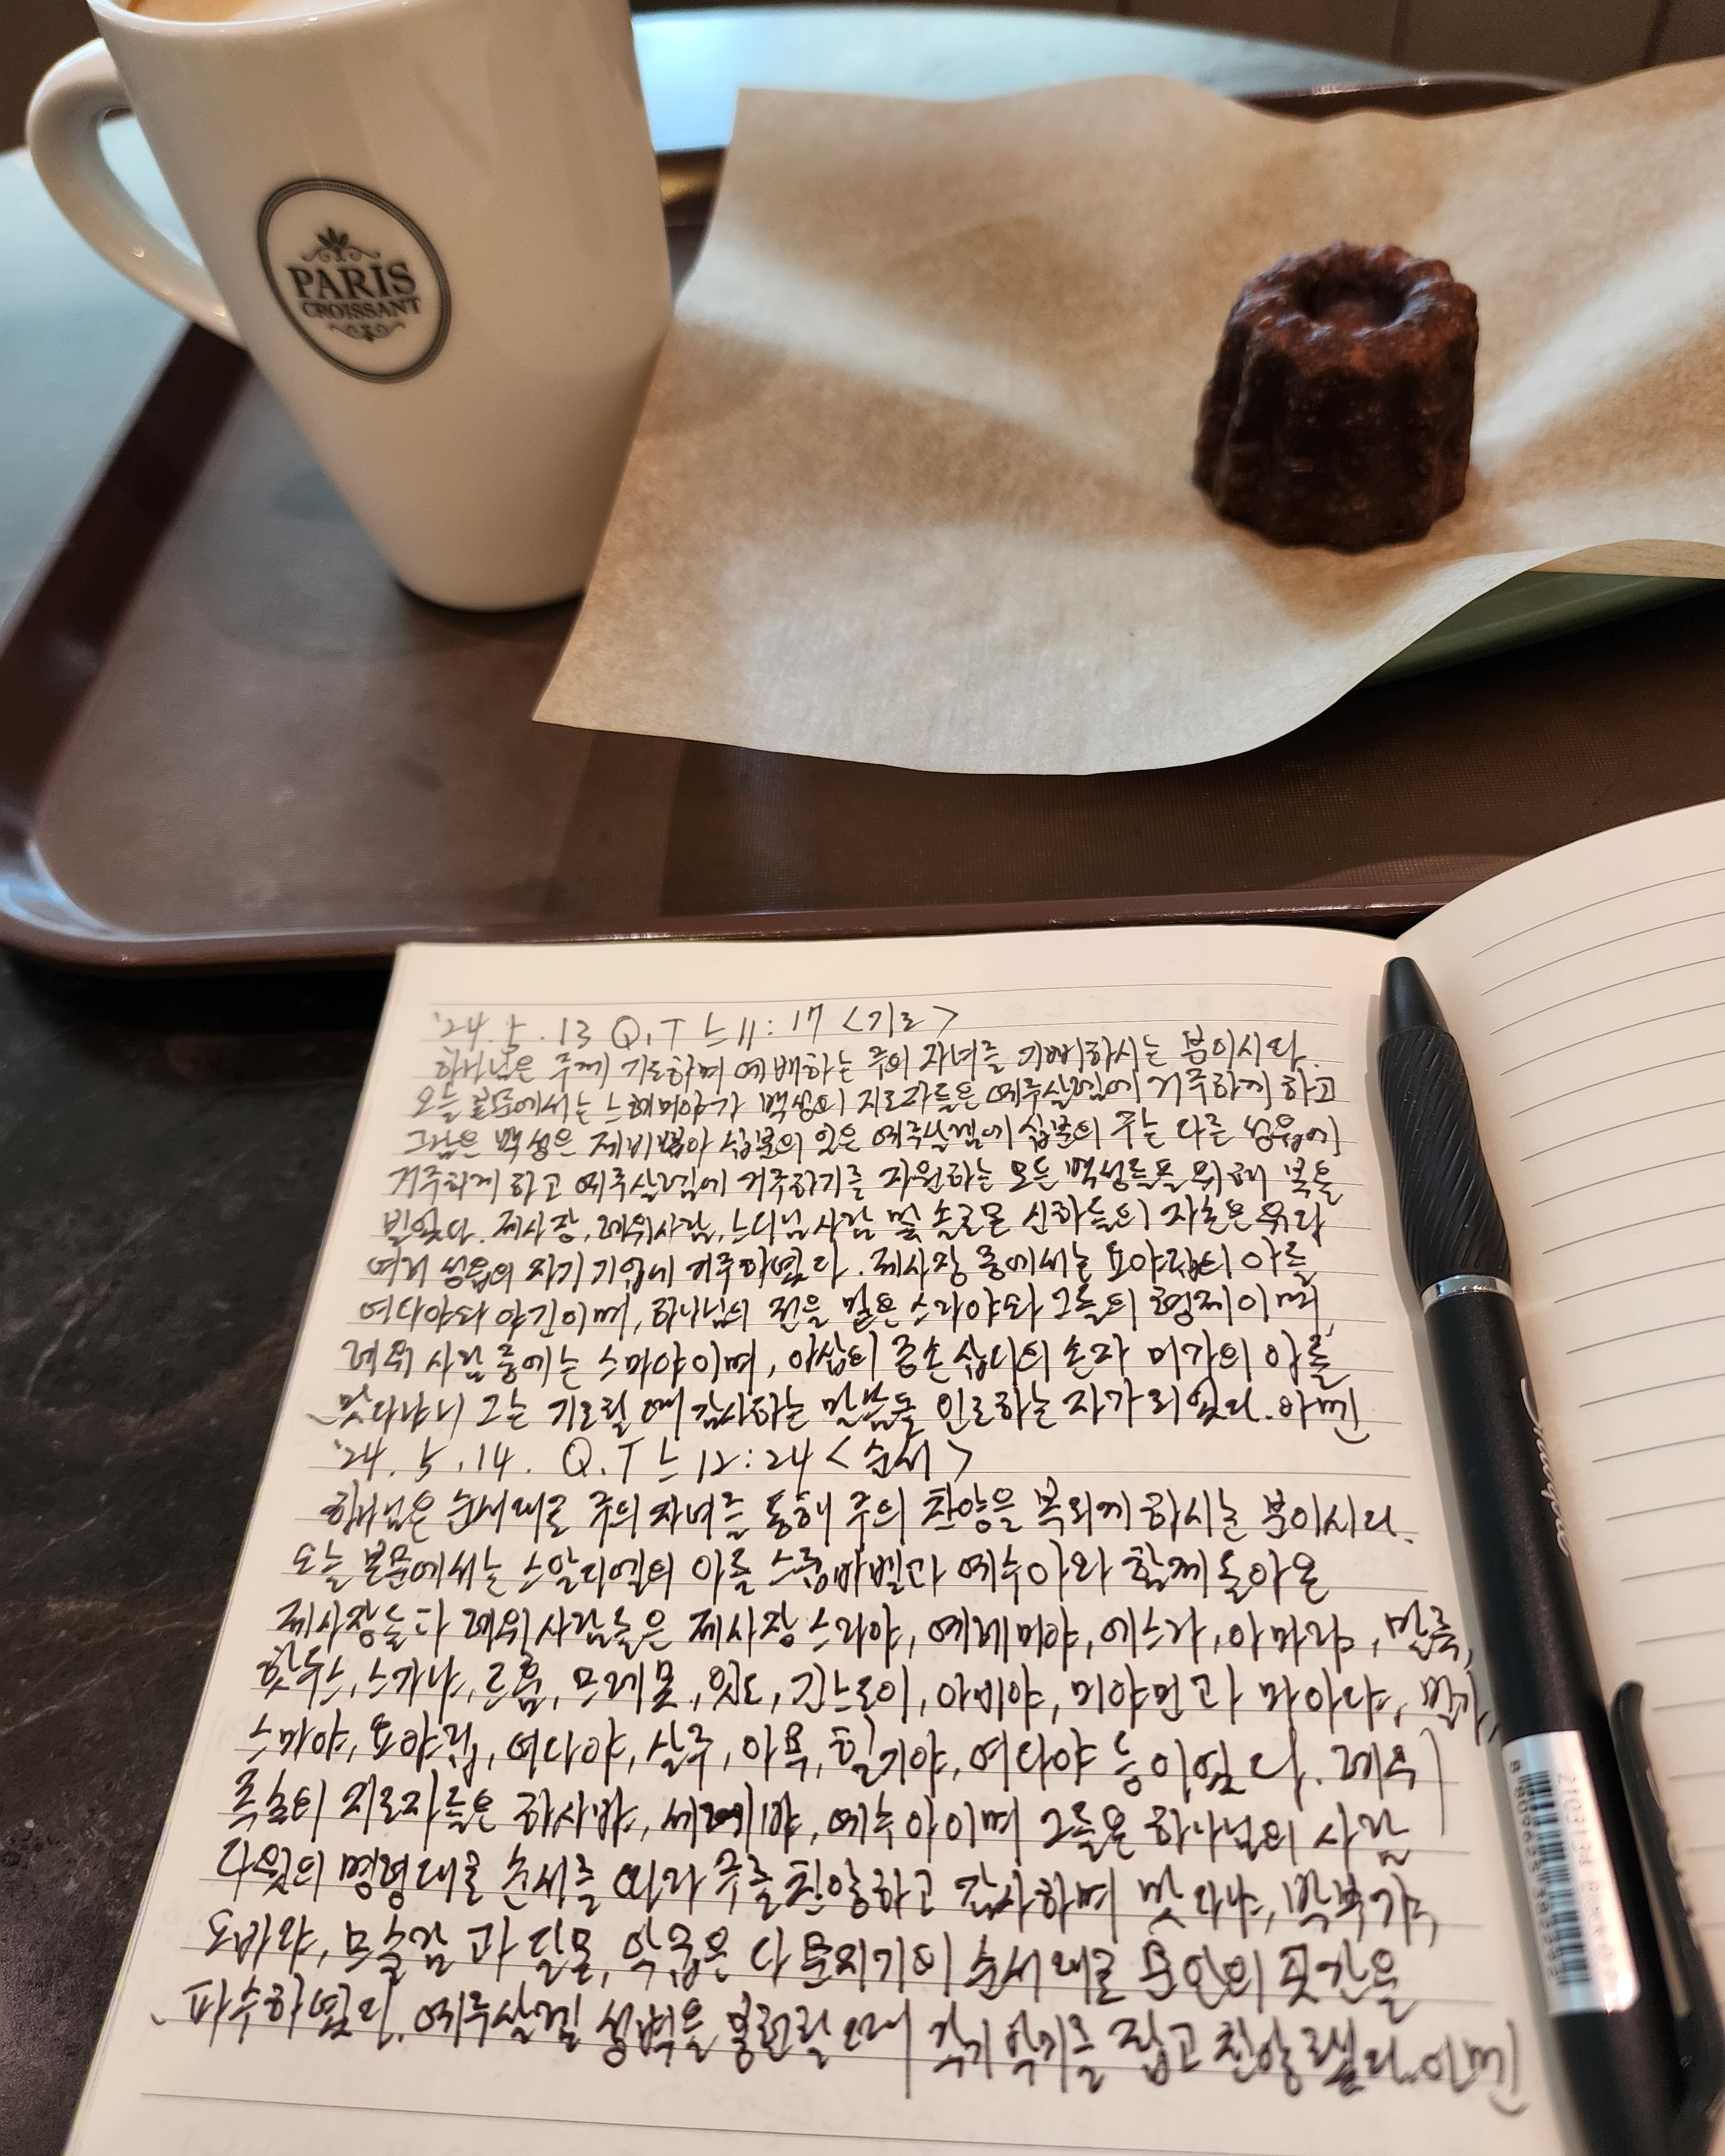 PARIS
CROISSANT
'24. 5. 13 Q.T 느 11:17 <기도>
하나님은 주께 기도하며 예배하는 주의 자녀를 기뻐하시는 분이시다.
오늘 본문에서는 느헤미야가 백성의 지도자들은 예루살렘에 거주하게 하고
그남은 백성은 제비뽑아 십분의 일은 예루살렘에 십분의 구는 다른 성읍에
거주하게 하고 예루살렘에 거주하기를 자원하는 모든 백성들을 위해 복을
빌었다. 제사장, 레위사람, 느디님 사람 및 솔로몬 신하들의 자손은 유다
여러 성읍의 자기 기업에 거주하였다. 제사장 중에서는 요야립의 아들
여다야와 야긴이며, 하나님의 전을 맡은 스라야와 그들의 형제이며,
레위 사람 중에는 스마야이며, 아삽의 증손 삽디의 손자 미가의 아들
맛다냐니 그는 기도할 때 감사하는 말씀을 인도하는 자가 되었다. 아멘
'24. 5. 14. Q.T 느 12:24 <순서>
하나님은 순서대로 주의 자녀를 통해 주의 찬양을 부르게 하시는 분이시다.
오늘 본문에서는 스알디엘의 아들 스룹바벨과 예수아와 함께 돌아온
제사장들과 레위사람들은 제사장 스라야, 예레미야, 에스라, 아마랴, 말룩,
핫두스, 스가냐, 르훔, 므레못, 잇도, 긴느도이, 아비야, 미야민과 마아댜, 빌가,
스마야, 요야립, 여다야, 살루, 아목, 힐기야, 여다야 등이었다. 레위
족속의 지도자들은 하사뱌, 세레뱌, 예수아이며 그들은 하나님의 사람
다윗의 명령대로 순서를 따라 주를 찬양하고 감사하며 맛다냐, 박부갸,
오바댜, 므술람과 달몬, 악굽은 다 문지기이 순서대로 문안의 곳간을
파수하였다. 예루살렘 성벽을 봉헌할 때에 각기 악기를 잡고 찬양하였다. 아멘
Sharpie